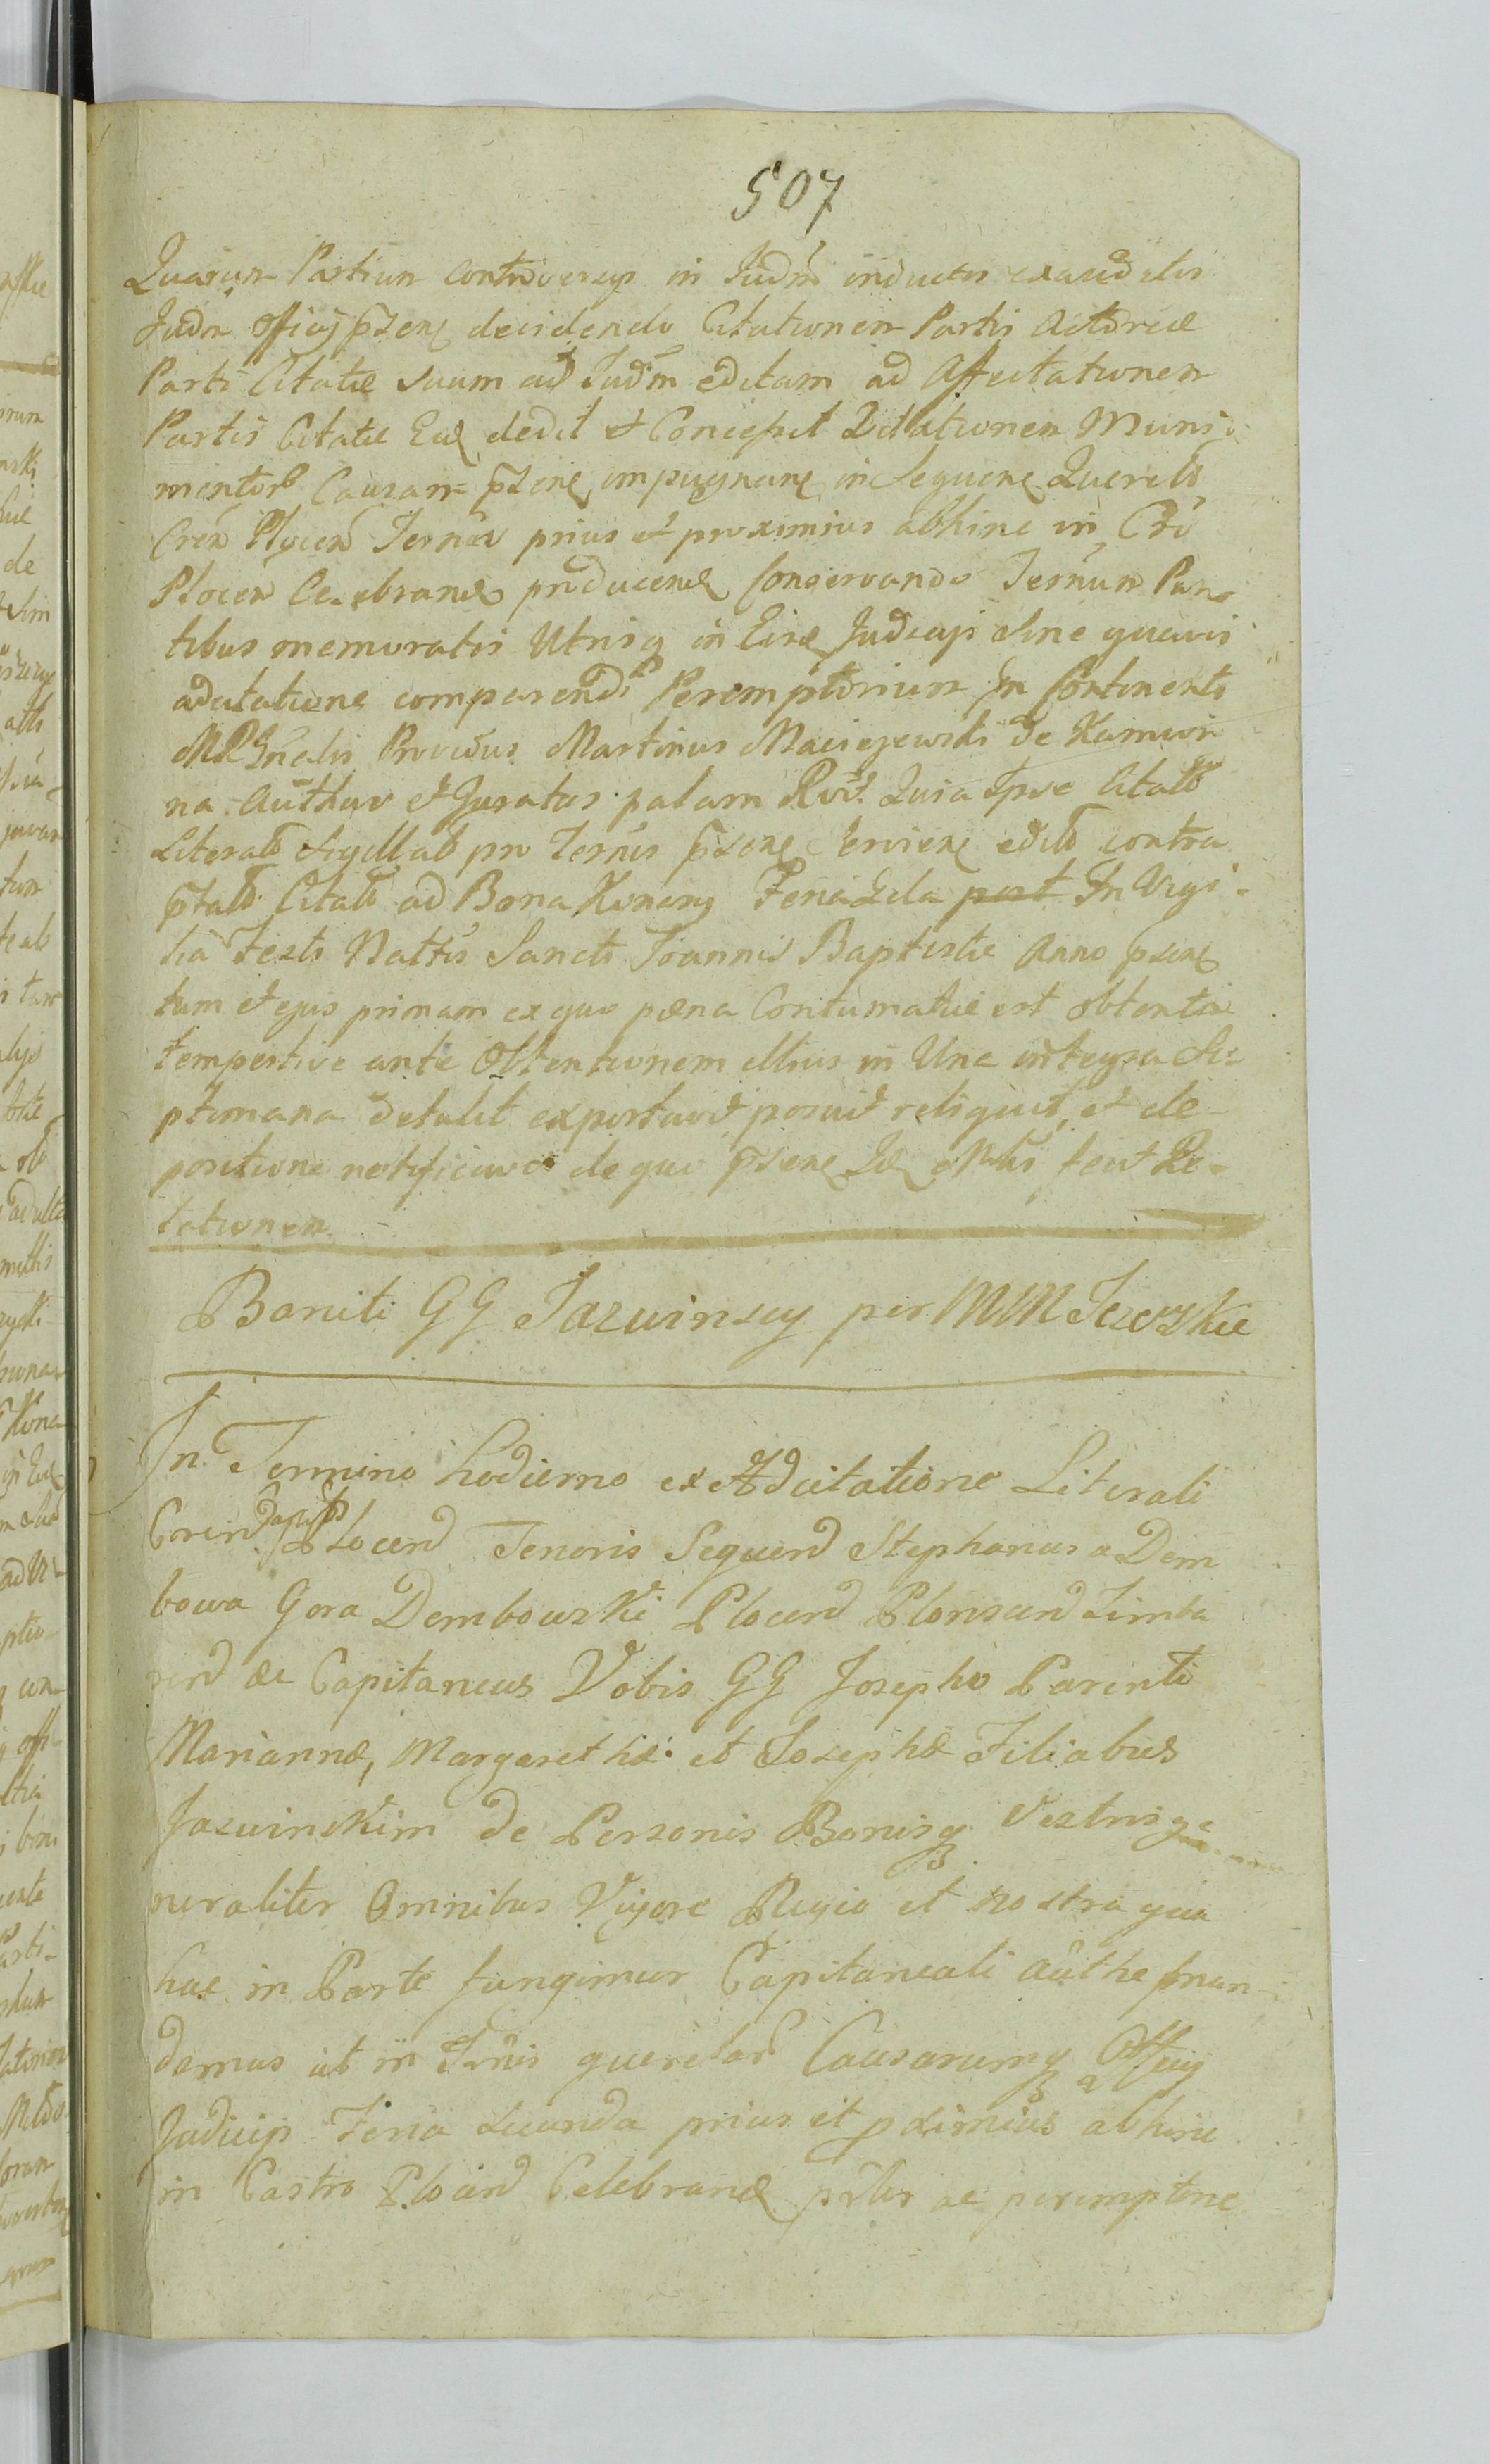 507
Quarum Partium controversys in Judm inductis exauditis
Judm Officij pszens decidendo Citationem Partis Actoreæ
Parti Citatæ suum ad Judm editam ad Affectationem
Partis Citatæ Ead dedit et Concessit Dilationem Muni-
mentorb Causam pszens impugnane in Sequene Querelb
Cren Plocen Termin prius et proximius abhinc in Cro
Plocen Celebrand producend Conservando Terminum Par-
tibus memoratis Utrisq in Eisd Judicijs sine quavis
adcitatione comparendi Peremptorium In Continenti
MRGnalis Providus Martinus Maciejewski de Kamion
na Author et Juratus palam Rvit Quia Ipse Citatb
Literalb Sigillatb pro Termis pszene Serviene editb contra
pstatb Citatb ad Bona Feria 2da post In Vigi-
lia Festi Nattis Sancti Joannis Baptistæ Anno pszene
tum et ejus primam ex quo pæna Contumatiæ est obtenta
tempestive ante Obtentionem illius in Una integra Se-
ptimana detulit exportavit posuit reliquit, et de
positione notificavit de quo pszene Id fecit Re-
lationem.
Baniti GG Jazwinscy per MM Jezewskie
In Termino hodierno ex Adcitatione Literali
Corend Capitli Plocend Tenoris Sequend Stephanus a Dem
bowa Gora Dembowski Plocend Plonscend Zimba
rend &c Capitaneus Vobis GG Josepho Parenti
Mariannæ, Margarethæ et Josephæ Filiabus
Jazwinskim de Personis Bonisq Vestris ge
neraliter Omnibus Vigore Regia et nostra qua
hac in Parte fungimur Capitaneali authe man-
damus ut in Trnis querelard Causarumq Officij
Judicijs Feria Secunda prius et pximius abhinc
in Castro Plocend Celebrand psltr ac peremptorie